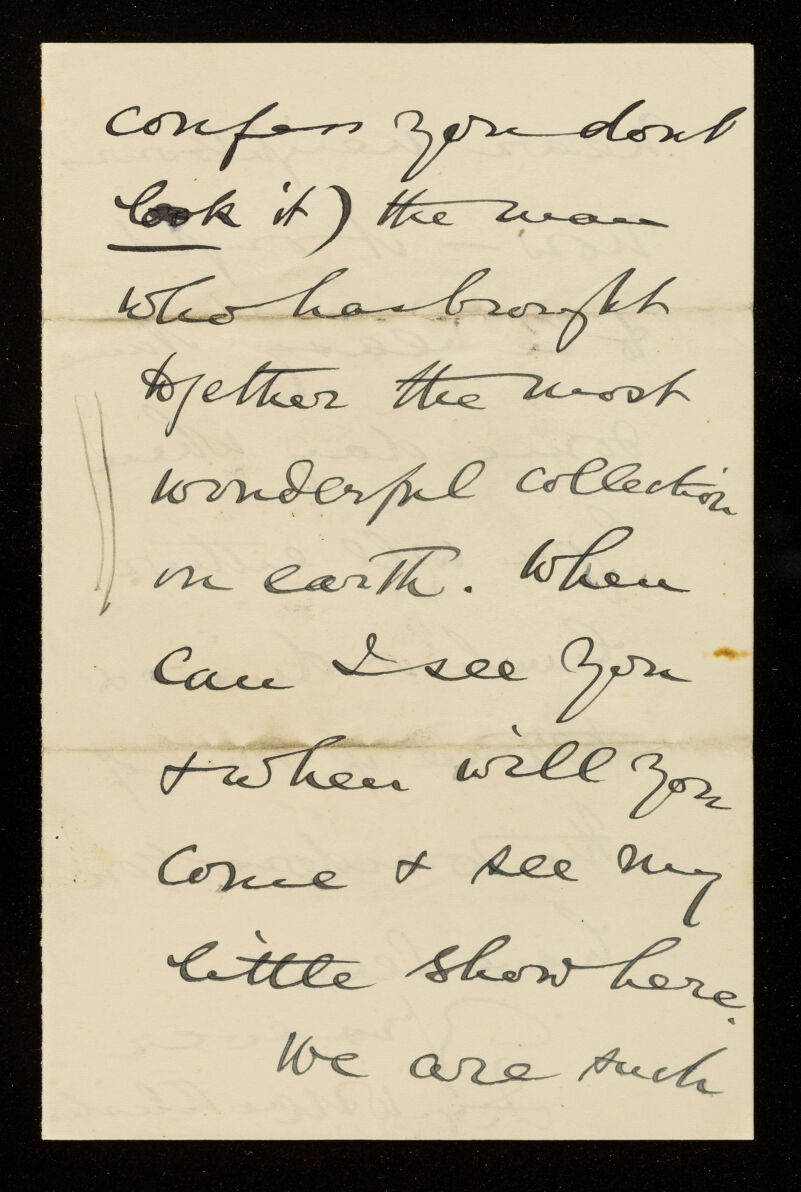 confess you dont
look it) the man
who has brought
together the most
wonderful collection
on earth. When
can I see you
& when will you
come & see my
little show here.
We are such